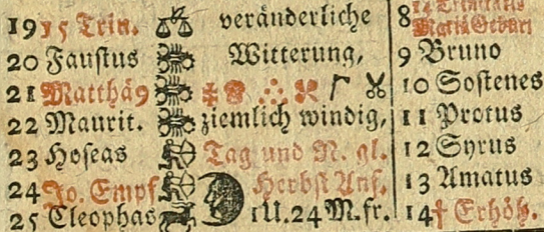 19 15 Trin. veränderliche 8 14 Trinitatis
Mariä Geburt
20 Faustus Witterung, 9 Bruno
21 Matthäꝰ 10 Sostenes
22 Maurit. ziemlich windig, 11 Protus
23 Hoseas Tag und N. gl. 12 Syrus
24 Jo. Empf Herbst Anf. 13 Amatus
25 Cleophas 1 U. 24 M. fr. 14 † Erhöh.